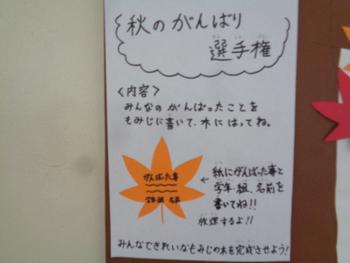 秋のがんばり
選手権
<内容>
みんなのがんばったことを
もみじに書いて、木にはってね。
がんばった事
学年 組 名前
← 紙にがんばった事と
学年、組、名前を
書いてね!!
放送するよ!!
みんなできれいなもみじの木を完成させよう!